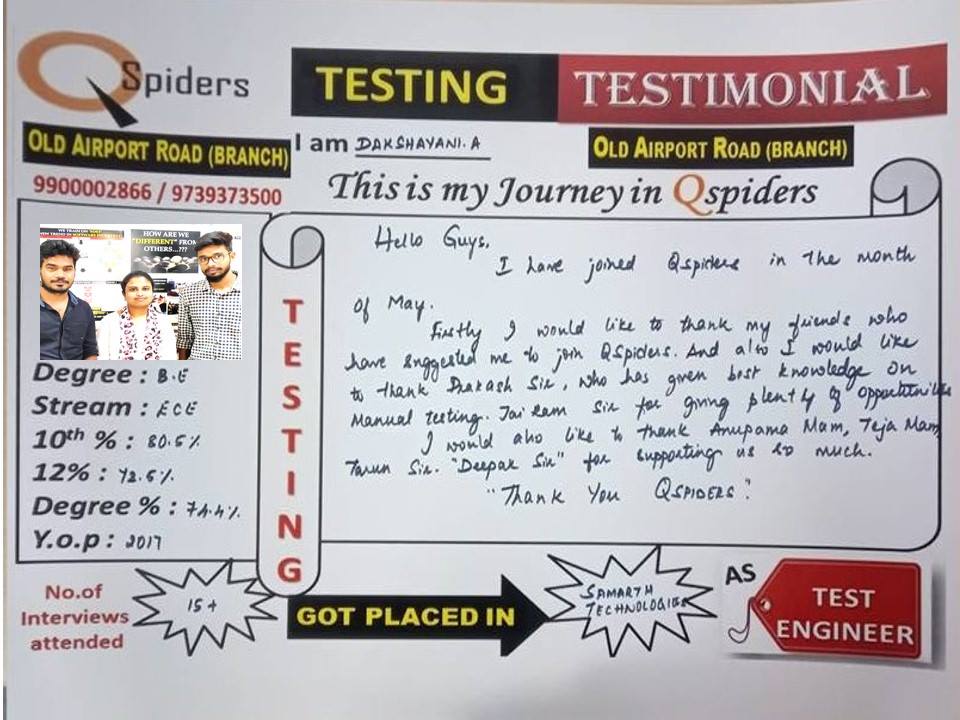 QSpiders
TESTING TESTIMONIAL
OLD AIRPORT ROAD (BRANCH)
I am DAKSHAYANI.A
OLD AIRPORT ROAD (BRANCH)
9900002866 / 9739373500
This is my Journey in Qspiders
HOW ARE WE
"DIFFERENT" FROM
OTHERS...???
Degree : B.E
Stream : ECE
10th % : 80.5%
12% : 72.5%
Degree % : 74.4%
Y.o.p : 2017
TESTING
Hello Guys,
I have joined Qspiders in the month
of May.
Firstly I would like to thank my friends who
have suggested me to join QSpiders. And also I would like
to thank Prakash Sir, who has given best knowledge on
Manual testing. Jai Ram Sir for giving plenty of opportunities
I would also like to thank Anupama Mam, Teja Mam,
Tarun Sir. "Deepak Sir" for supporting us so much.
"THANK YOU QSPIDERS."
No.of
Interviews
attended
15+
GOT PLACED IN
SAMARTH
TECHNOLOGIES
AS
TEST
ENGINEER